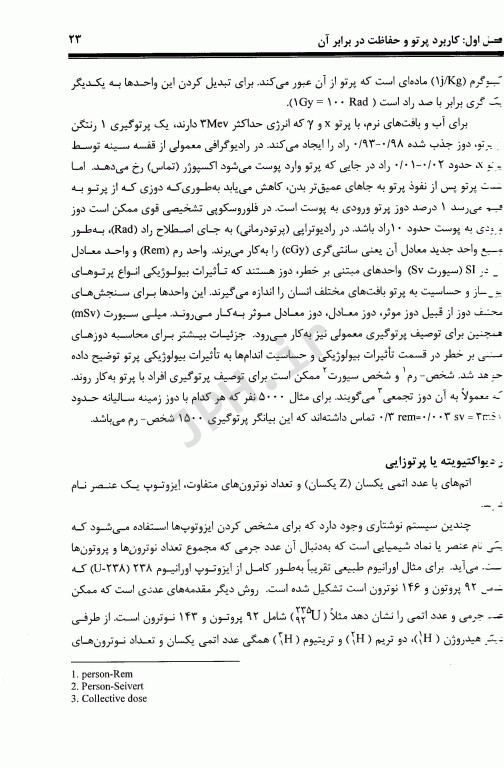 فصل اول: کاربرد پرتو و حفاظت در برابر آن ۲۳
کیلوگرم (۱j/Kg) ماده‌ای است که پرتو از آن عبور می‌کند. برای تبدیل کردن این واحدها به یکدیگر
یک گری برابر با صد راد است (۱Gy = ۱۰۰ Rad).
برای آب و بافت‌های نرم، با پرتو x و γ که انرژی حداکثر ۳Mev دارند، یک پرتوگیری ۱ رنتگن
پرتو، دوز جذب شده ۰/۹۸-۰/۹۳ راد را ایجاد می‌کند. در رادیوگرافی معمولی از قفسه سینه توسط
پرتو x، حدود ۰/۰۲-۰/۰۱ راد در جایی که پرتو وارد پوست می‌شود اکسپوژر (تماس) رخ می‌دهد. اما
شدت پرتو پس از نفوذ پرتو به جاهای عمیق‌تر بدن، کاهش می‌یابد به‌طوری‌که دوزی که از پرتو به
فیلم می‌رسد ۱ درصد دوز پرتو ورودی به پوست است. در فلوروسکوپی تشخیصی قوی ممکن است دوز
ورودی به پوست حدود ۱۰راد باشد. در رادیوتراپی (پرتودرمانی) به جای اصطلاح راد (Rad)، به‌طور
وسیع واحد جدید معادل آن یعنی سانتی‌گری (cGy) را به‌کار می‌برند. واحد رم (Rem) و واحد معادل
در SI (سیورت Sv) واحدهای مبتنی بر خطر، دوز هستند که تأثیرات بیولوژیکی انواع پرتوهای
یون‌ساز و حساسیت به پرتو بافت‌های مختلف انسان را اندازه می‌گیرند. این واحدها برای سنجش‌های
مختلف دوز از قبیل دوز موثر، دوز معادل، دوز معادل موثر به‌کار می‌روند. میلی سیورت (mSv)
همچنین برای توصیف پرتوگیری معمولی نیز به‌کار می‌رود. جزئیات بیشتر برای محاسبه دوزهای
مبتنی بر خطر در قسمت تأثیرات بیولوژیکی و حساسیت اندام‌ها به تأثیرات بیولوژیکی پرتو توضیح داده
خواهد شد. شخص- رم۱ و شخص سیورت۲ ممکن است برای توصیف پرتوگیری افراد با پرتو به‌کار روند.
که معمولاً به آن دوز تجمعی۳ می‌گویند. برای مثال ۵۰۰۰ نفر که هر کدام با دوز زمینه سالیانه حدود
۰/۳ rem=۰/۰۰۳ sv = ۳mSv تماس داشته‌اند که این بیانگر پرتوگیری ۱۵۰۰ شخص- رم می‌باشد.
رادیواکتیویته یا پرتوزایی
اتم‌های با عدد اتمی یکسان (Z یکسان) و تعداد نوترون‌های متفاوت، ایزوتوپ یک عنصر نام
چندین سیستم نوشتاری وجود دارد که برای مشخص کردن ایزوتوپ‌ها استفاده می‌شود که
یکی نام عنصر یا نماد شیمیایی است که به‌دنبال آن عدد جرمی که مجموع تعداد نوترون‌ها و پروتون‌ها
است، می‌آید. برای مثال اورانیوم طبیعی تقریباً به‌طور کامل از ایزوتوپ اورانیوم ۲۳۸ (U-۲۳۸) که
شامل ۹۲ پروتون و ۱۴۶ نوترون است تشکیل شده است. روش دیگر مقدمه‌های عددی است که ممکن
عدد جرمی و عدد اتمی را نشان دهد مثلاً (²³⁵₉₂U) شامل ۹۲ پروتون و ۱۴۳ نوترون است. از طرفی
دیگر هیدروژن (¹₁H)، دو تریم (²₁H) و تریتیوم (³₁H) همگی عدد اتمی یکسان و تعداد نوترون‌های
1. person-Rem
2. Person-Seivert
3. Collective dose